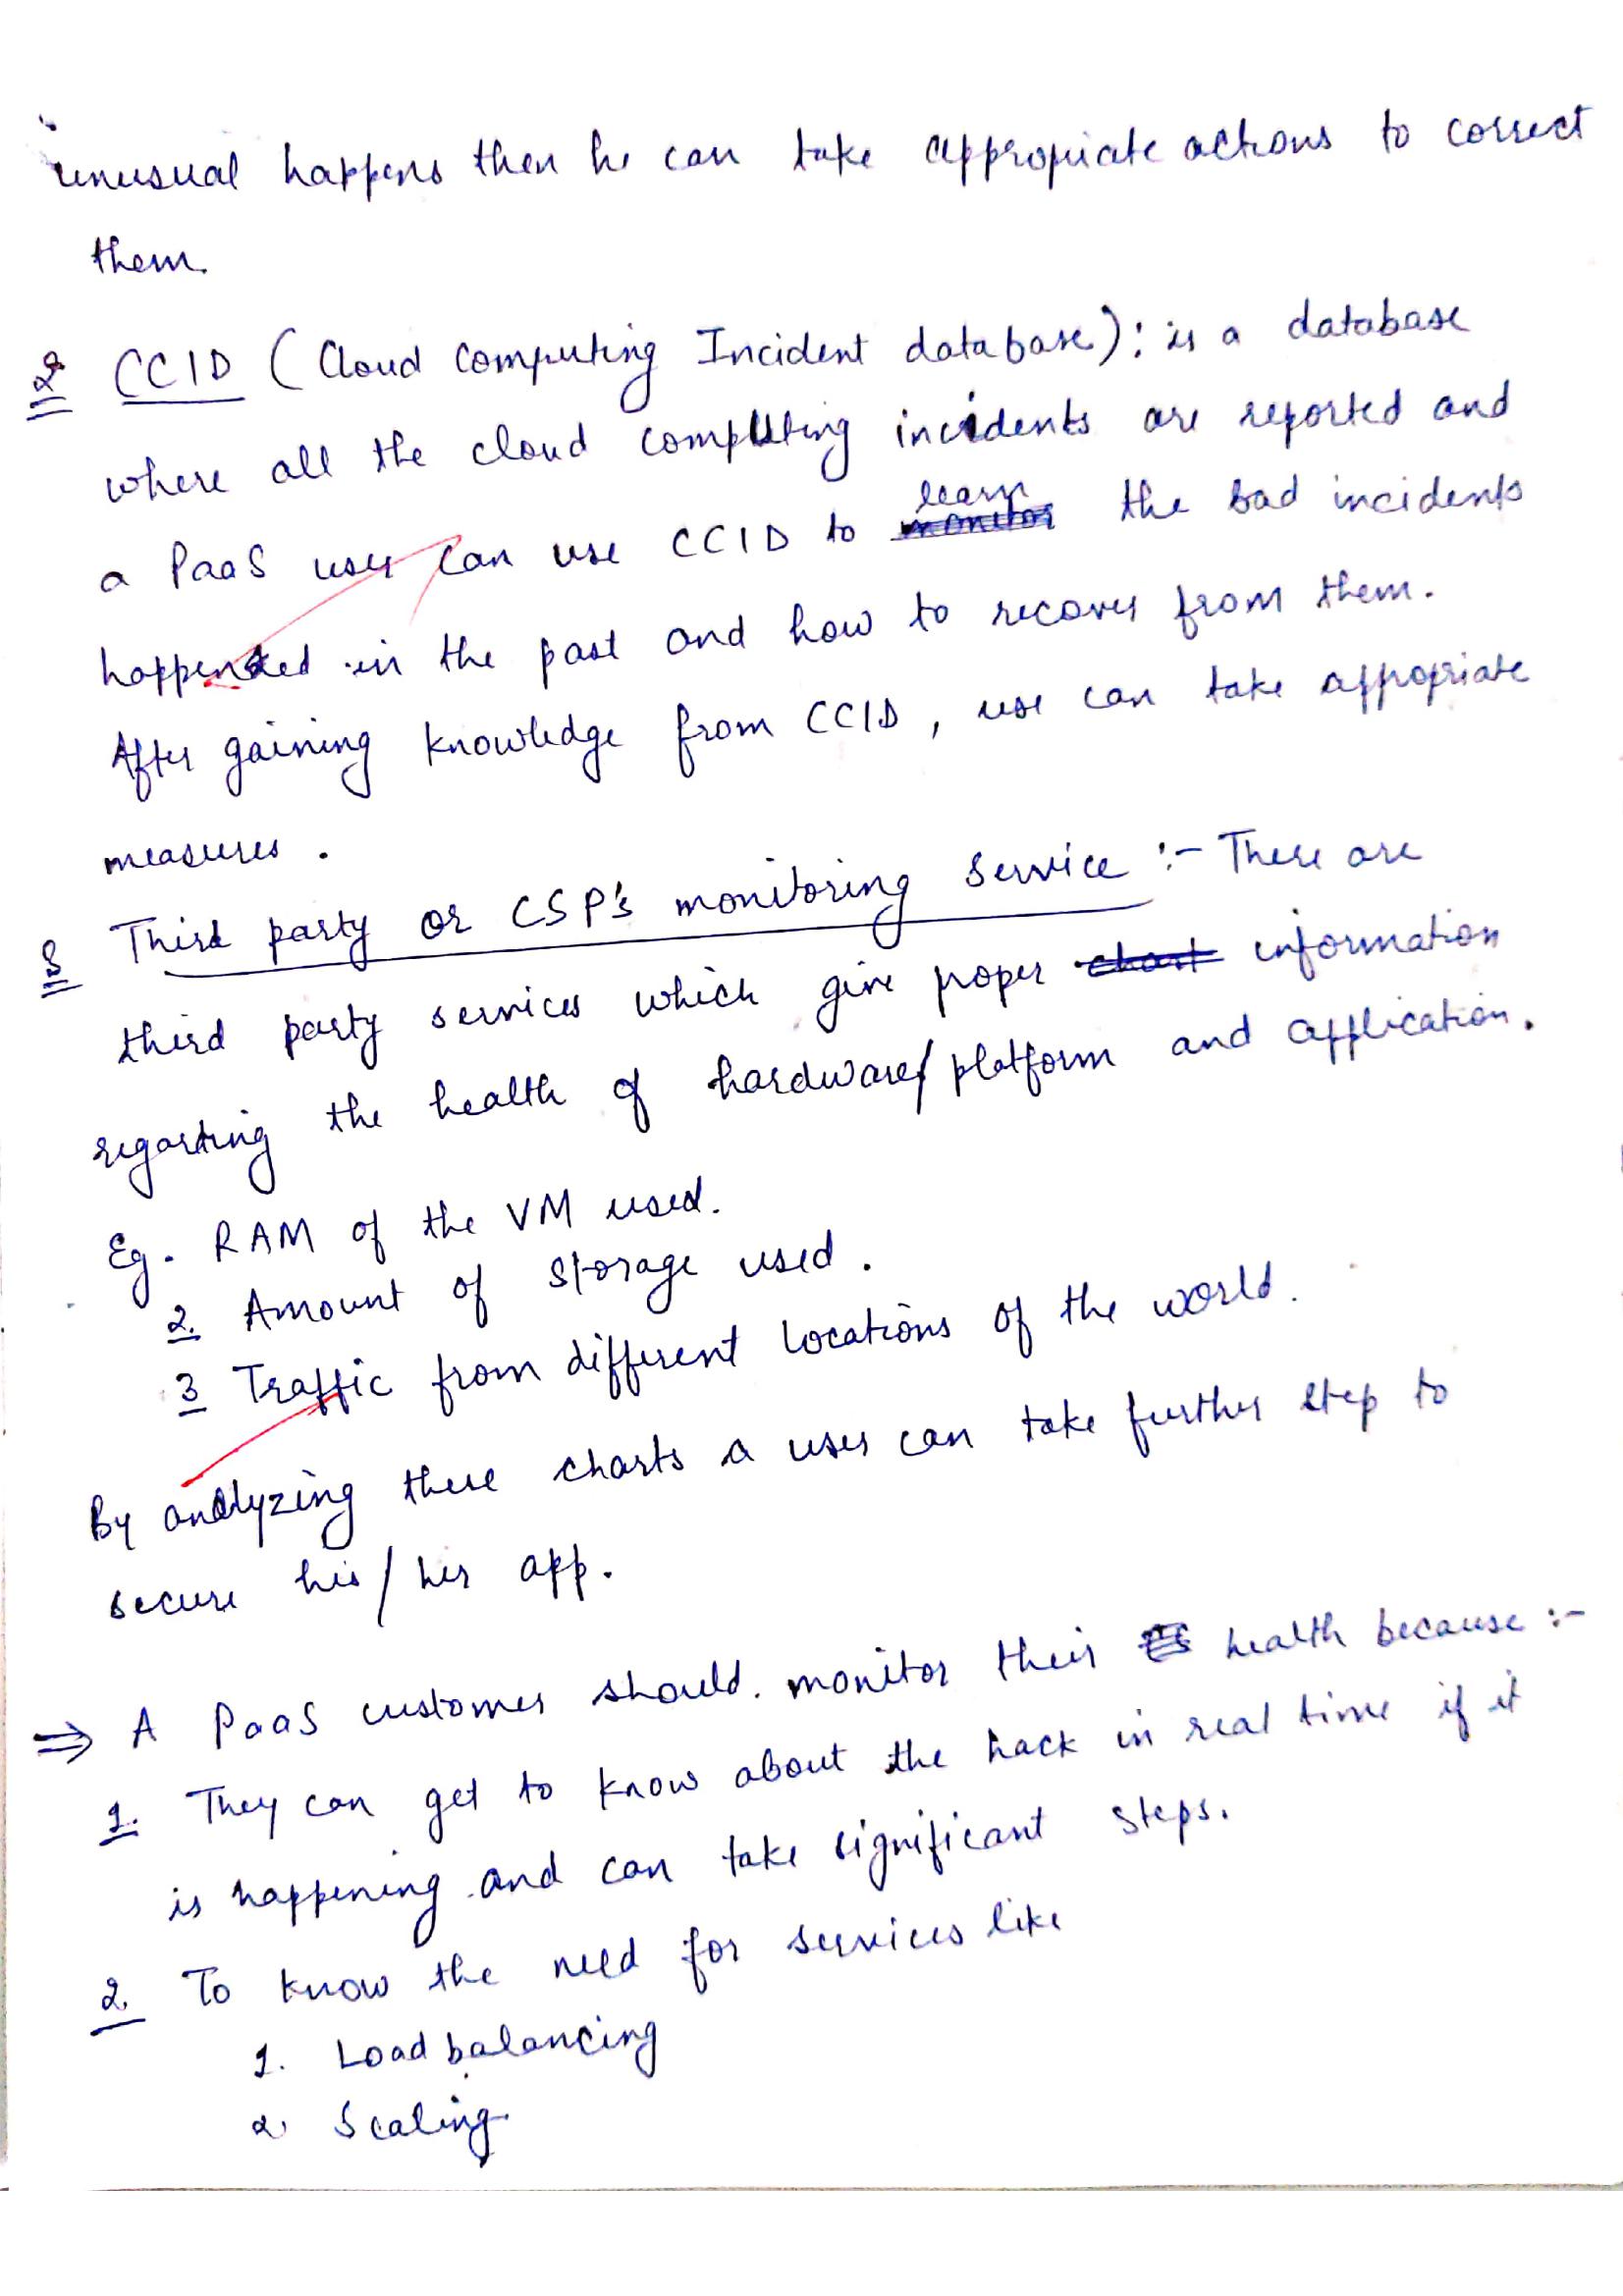 unusual happens then he can take appropriate actions to correct
them.
2 CCID (Cloud Computing Incident database): is a database
where all the cloud computing incidents are reported and
a PaaS user can use CCID to learn the bad incidents
happended in the past and how to recover from them.
After gaining knowledge from CCID, use can take appropriate
measures.
3 Third party or CSP's monitoring service :- There are
third party services which give proper chart information
regarding the health of hardware/ platform and application.
Eg. RAM of the VM used.
2. Amount of storage used.
3 Traffic from different locations of the world.
By analyzing these charts a user can take further step to
secure his/her app.
⇒ A PaaS customer should. monitor their health because :-
1. They can get to know about the hack in real time if it
is happening and can take significant steps.
2. To know the need for services like
1. Load balancing
2. Scaling